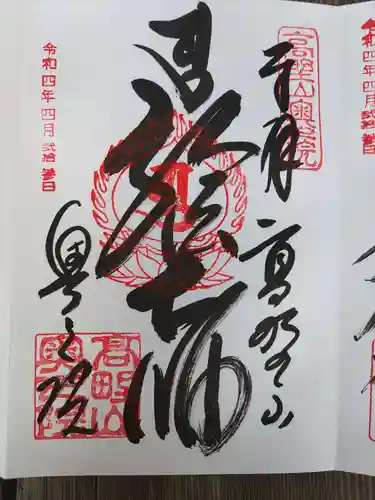 高野山奥之院
奉拝
高野山
弘法大師
令和四年四月弐拾参日
奥之院
高野山
奥之院
令和四年四月弐拾参日